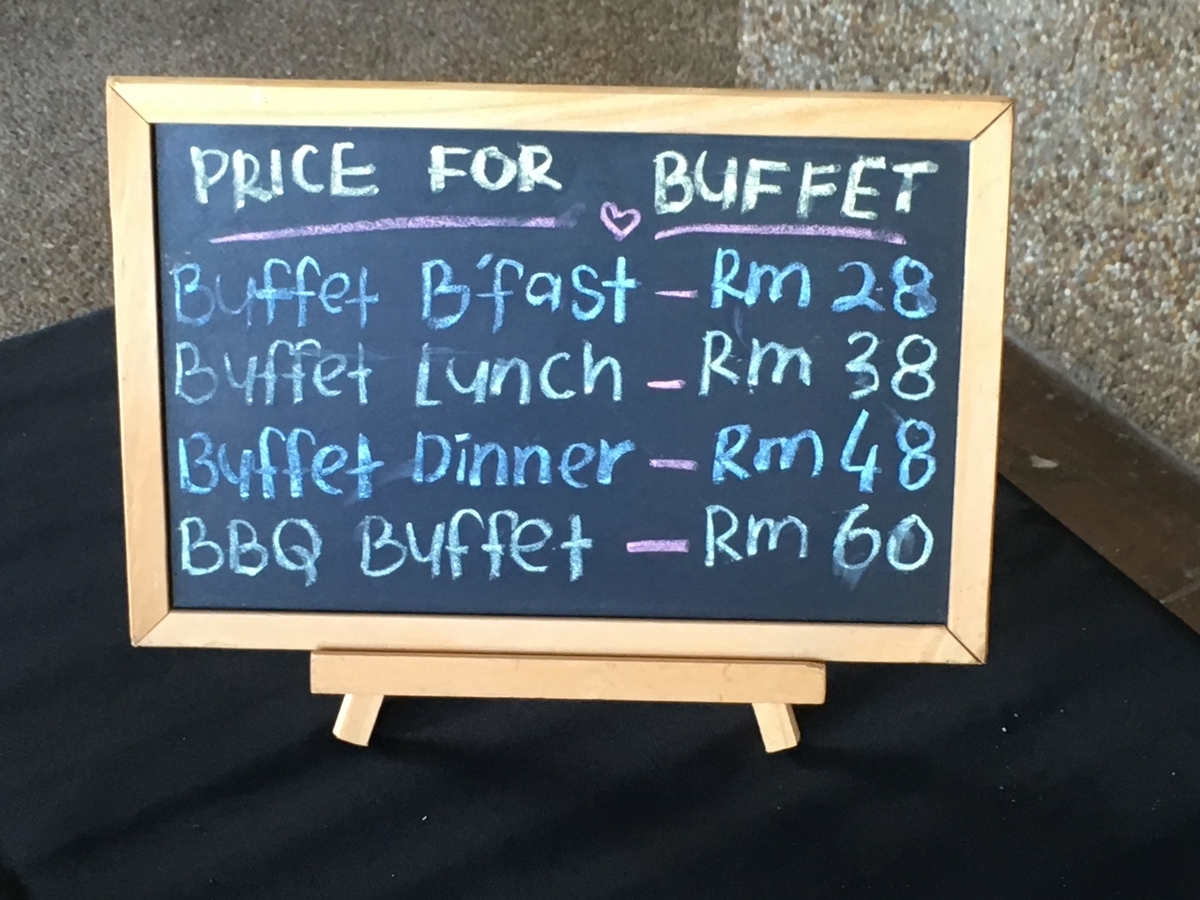 PRICE FOR BUFFET
Buffet B'fast - Rm 28
Buffet Lunch - Rm 38
Buffet Dinner - Rm 48
BBQ Buffet - Rm 60